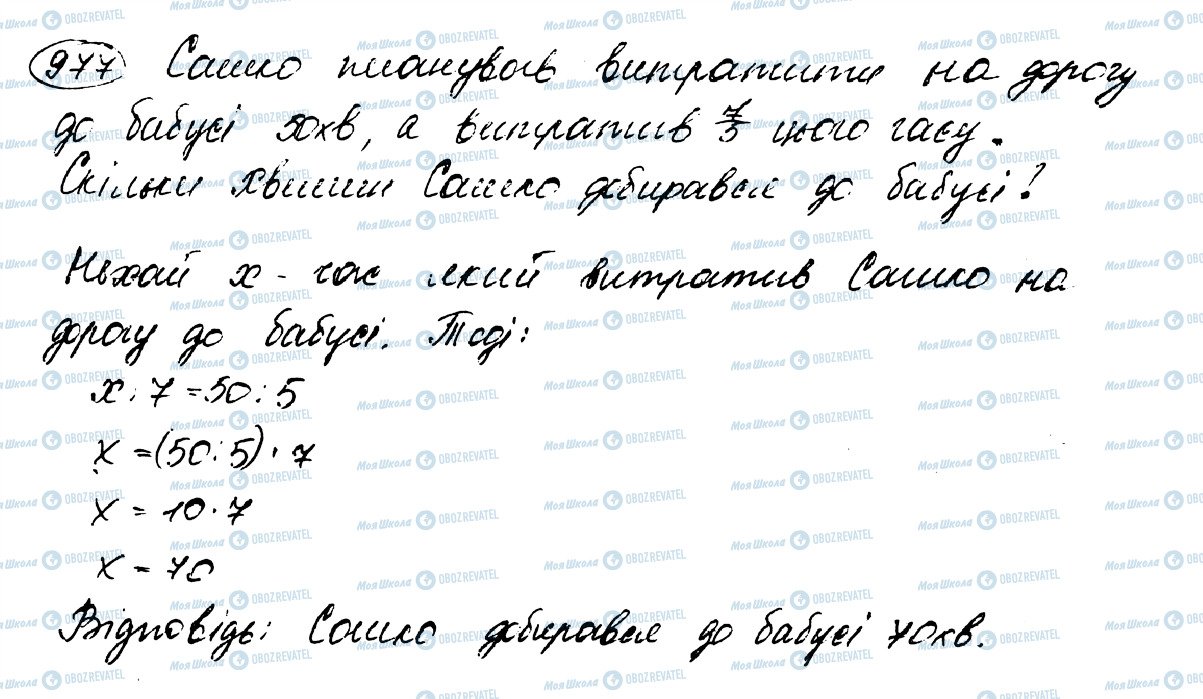 977 Сашко планував витратити на дорогу
до бабусі 50хв, а витратив 7/5 цього часу.
Скільки хвилин Сашко добирався до бабусі?
Нехай x - час який витратив Сашко на
дорогу до бабусі. Тоді:
x : 7 = 50 : 5
x = (50 : 5) · 7
x = 10 · 7
x = 70
Відповідь: Сашко добирався до бабусі 70хв.